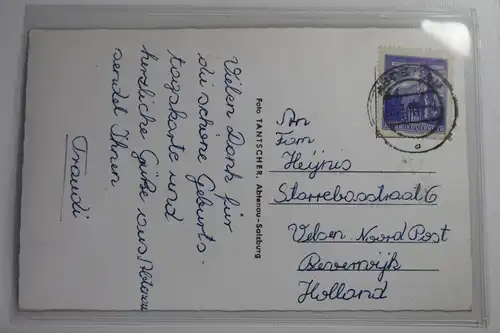 Vielen Dank für
die schöne Geburts-
tagskarte und
herzliche Grüße aus Abtenau
sendet Ihnen
Traudi
Foto TANTSCHER, Abtenau-Salzburg
An
Fam
Heijnis
Starrebosstraat 6
Velsen. Noord Post
Beverwijk
Holland